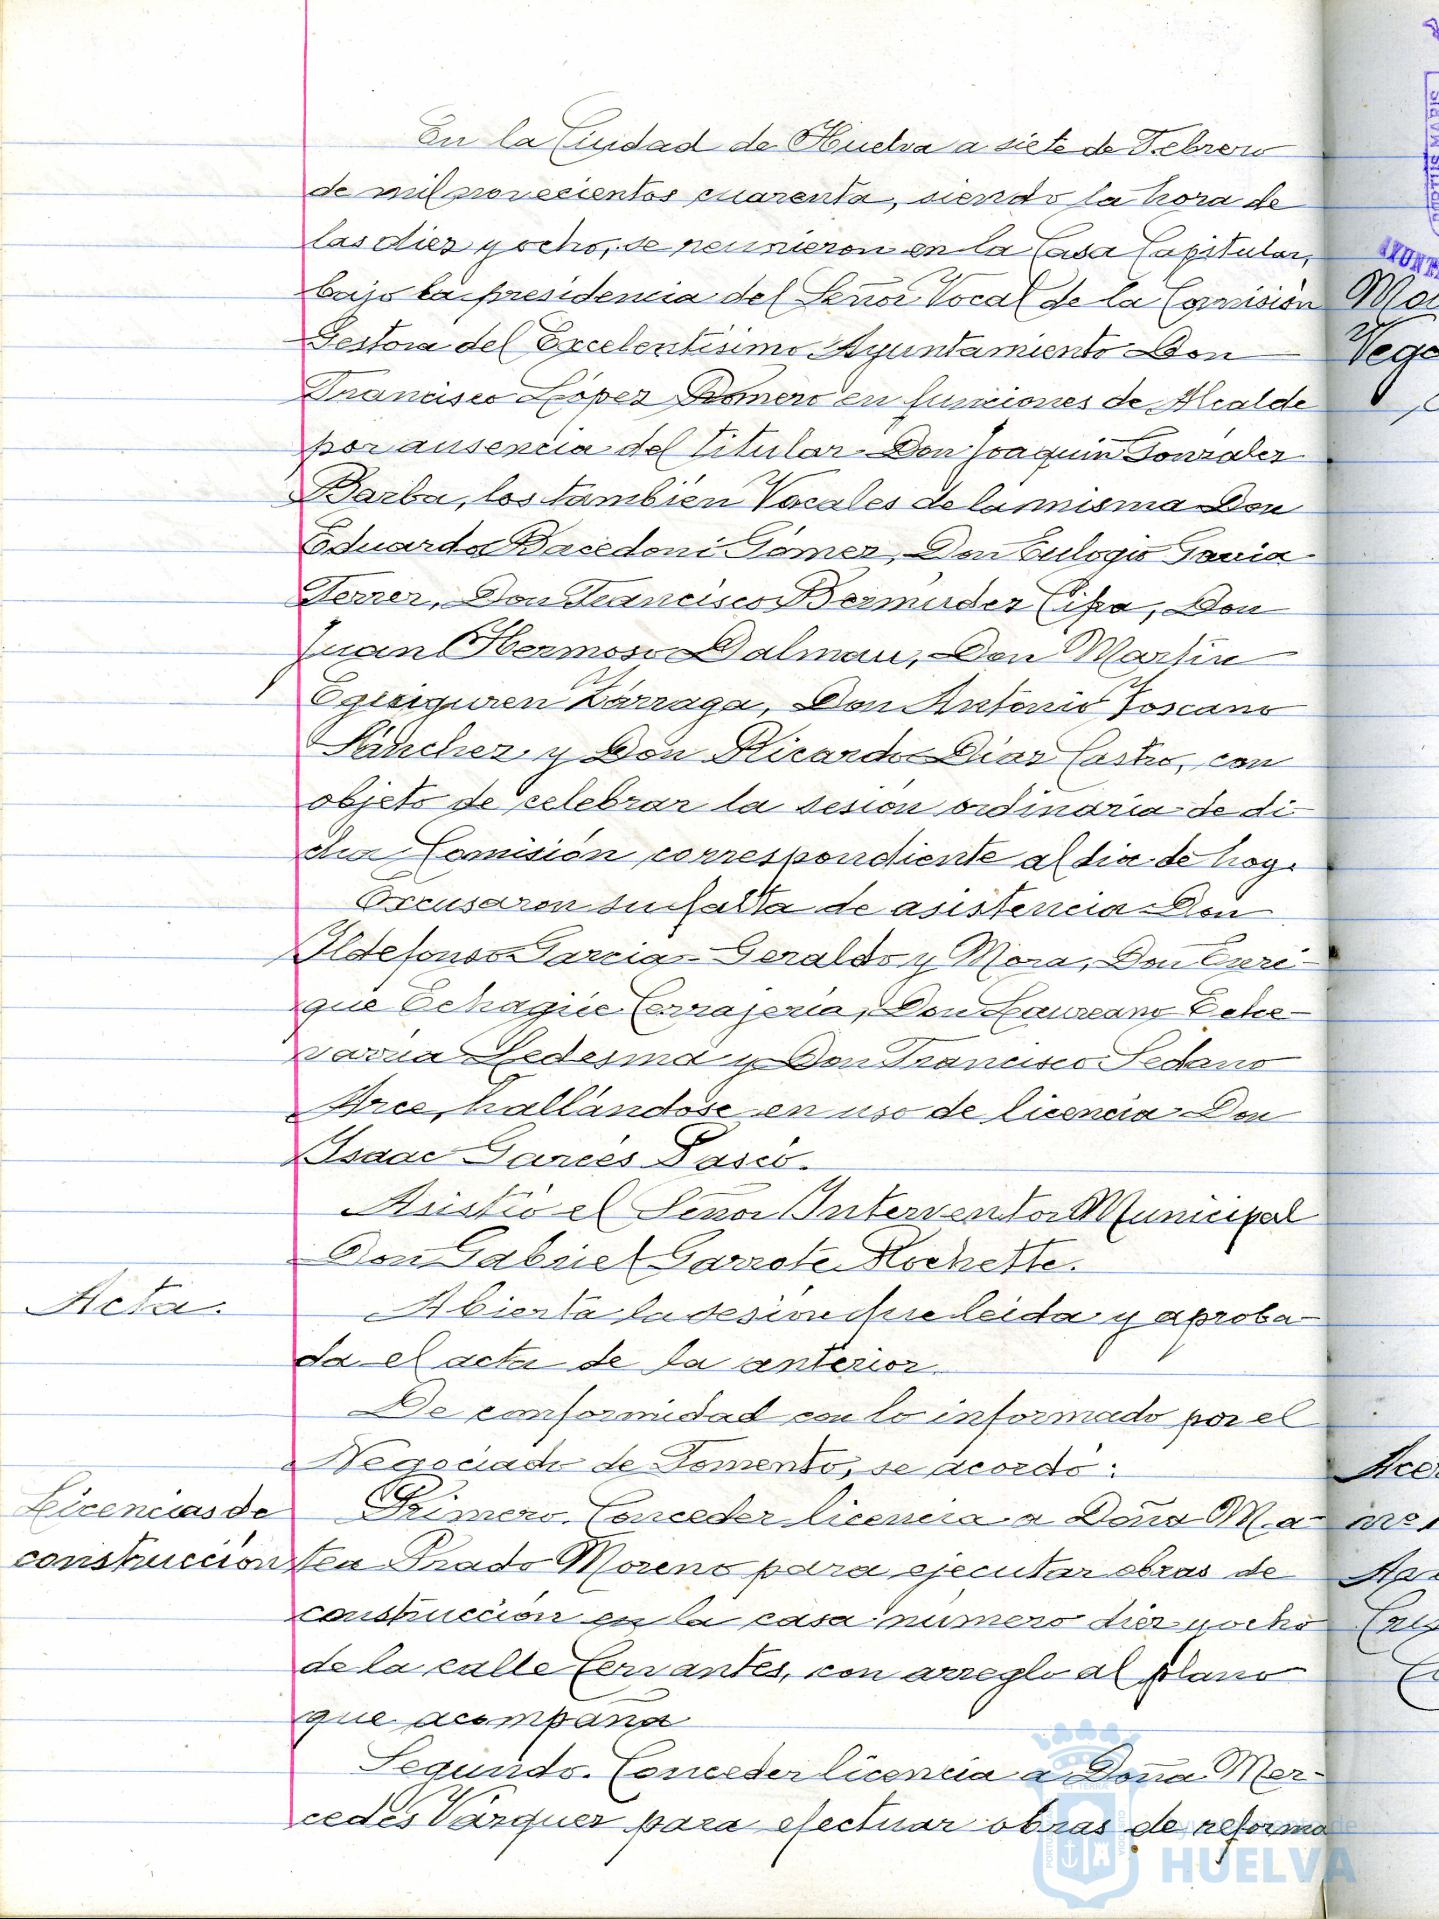 En la Ciudad de Huelva a siete de Febrero
de mil novecientos cuarenta, siendo la hora de
las diez y ocho, se reunieron en la Casa Capitular,
bajo la presidencia del Señor Vocal de la Comisión
Gestora del Excelentísimo Ayuntamiento Don
Francisco López Romero en funciones de Alcalde
por ausencia del titular Don Joaquin González
Barba, los también Vocales de la misma Don
Eduardo Bacedoni Gómez, Don Eulogio Gavia
Ferrer, Don Francisco Bermúdez Cipa, Don
Juan Hermoso Dalmau, Don Martín
Eguiguren Zárraga, Don Antonio Toscano
Sánchez y Don Ricardo Díaz Castro, con
objeto de celebrar la sesión ordinaria de di-
cha Comisión correspondiente al dia de hoy.
Excusaron su falta de asistencia Don
Ildefonso Garcia-Geraldo y Mora, Don Enri-
que Echagüe Cerrajería, Don Laureano Eche-
varria Ledesma y Don Francisco Sedano
Arce, hallándose en uso de licencia Don
Isaac Garcés Pascó.
Asistió el Señor Interventor Municipal
Don Gabriel Garrote Rochette.
Acta.
Abierta la sesión fue leida y aproba-
da el acta de la anterior.
De conformidad con lo informado por el
Negociado de Fomento, se acordó:
Licencias de
construcción
Primero. Conceder licencia a Doña Ma-
tea Prado Moreno para ejecutar obras de
construcción en la casa número diez y ocho
de la calle Cervantes, con arreglo al plano
que acompaña
Segundo. Conceder licencia a Doña Mer-
cedes Vázquez para efectuar obras de reforma
HUELVA
PORTUS MARIS